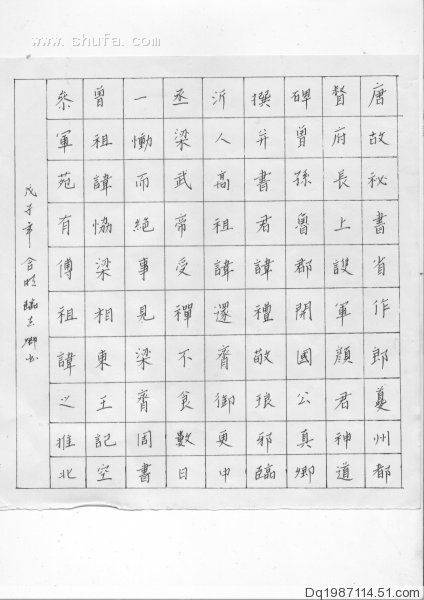 www.shufa.com
唐故秘書省作郎夔州都
督府長上護軍顏君神道
碑曾孫魯郡開國公真卿
撰并書君諱禮敬琅邪臨
沂人高祖諱還齊御更中
丞梁武帝受禪不食數日
一慟而絕事見梁齊周書
曾祖諱協梁相東王記空
參軍苑有傅祖諱之推北
戊子年臨真卿書
Dq1987114.51.com